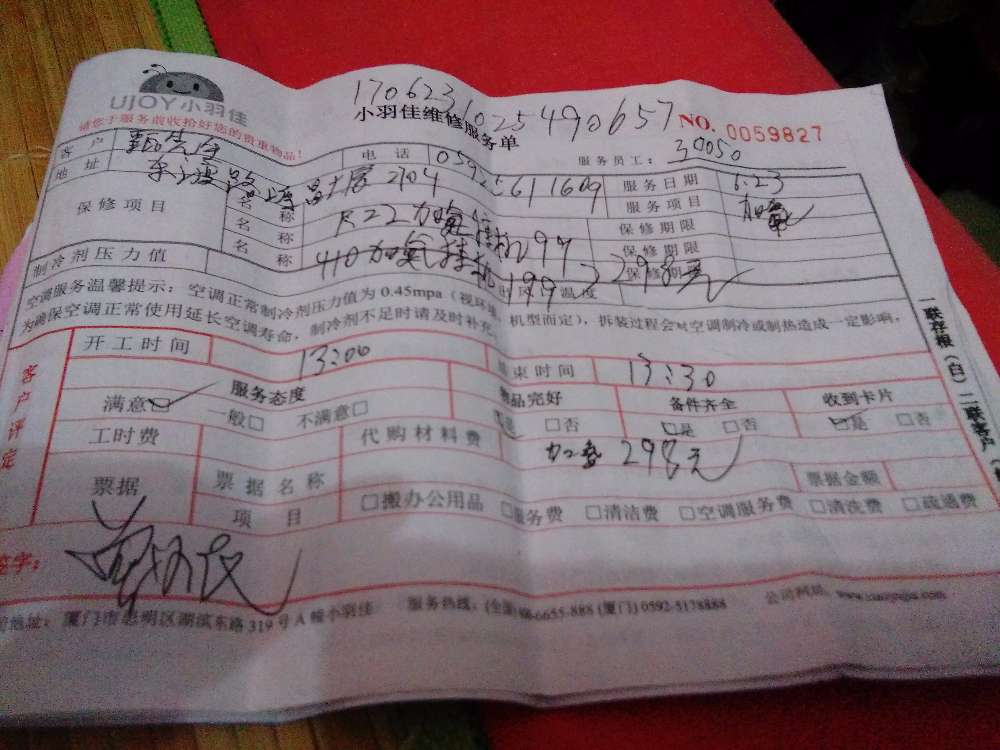 UJOY小羽佳
170623 1025490657
小羽佳维修服务单
NO. 0059827
请您于服务前收拾好您的贵重物品!
服务员工: 30050
客户
电话 05925611609
服务日期 6.23
地址 2704
服务项目 加氟
保修项目
名称 R22加氟 299
保修期限
名称 410加氟挂机 199
保修期限
名称
保修期限
298元
制冷剂压力值
出风口温度
空调服务温馨提示: 空调正常制冷剂压力值为 0.45mpa (视环境、机型而定), 拆装过程会对空调制冷或制热造成一定影响,
为确保空调正常使用延长空调寿命, 制冷剂不足时请及时补充。
客户评定
开工时间 13:00
结束时间 13:30
服务态度
物品完好
备件齐全
收到卡片
满意☑ 一般□ 不满意□
是 □否
☑是 □否
☑是 □否
工时费
代购材料费
298元
票据
票据名称
票据金额
项目
□搬办公用品 □服务费 □清洁费 □空调服务费 □清洗费 □疏通费
签字:
地址: 厦门市思明区湖滨东路 319 号 A 幢小羽佳
服务热线: (全国) 6655-888 (厦门) 0592-5178888
公司网站:
一联存根(白) 二联客户